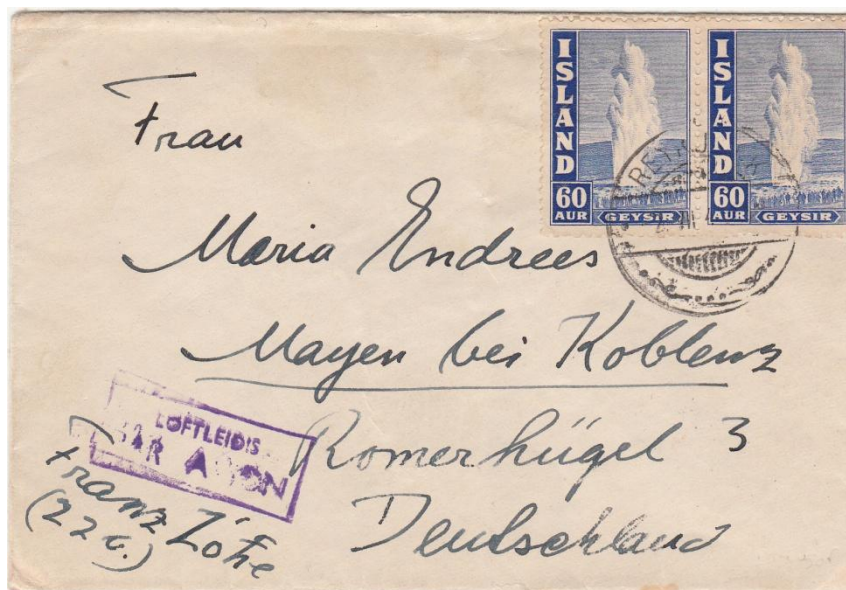 ISLAND
60
AUR
GEYSIR
ISLAND
60
AUR
GEYSIR
Frau
Maria Endrees
Mayen bei Koblenz
Römerhügel 3
Deutschland
LOFTLEIDIS
PAR AVION
Franz. Zone
(22 b.)